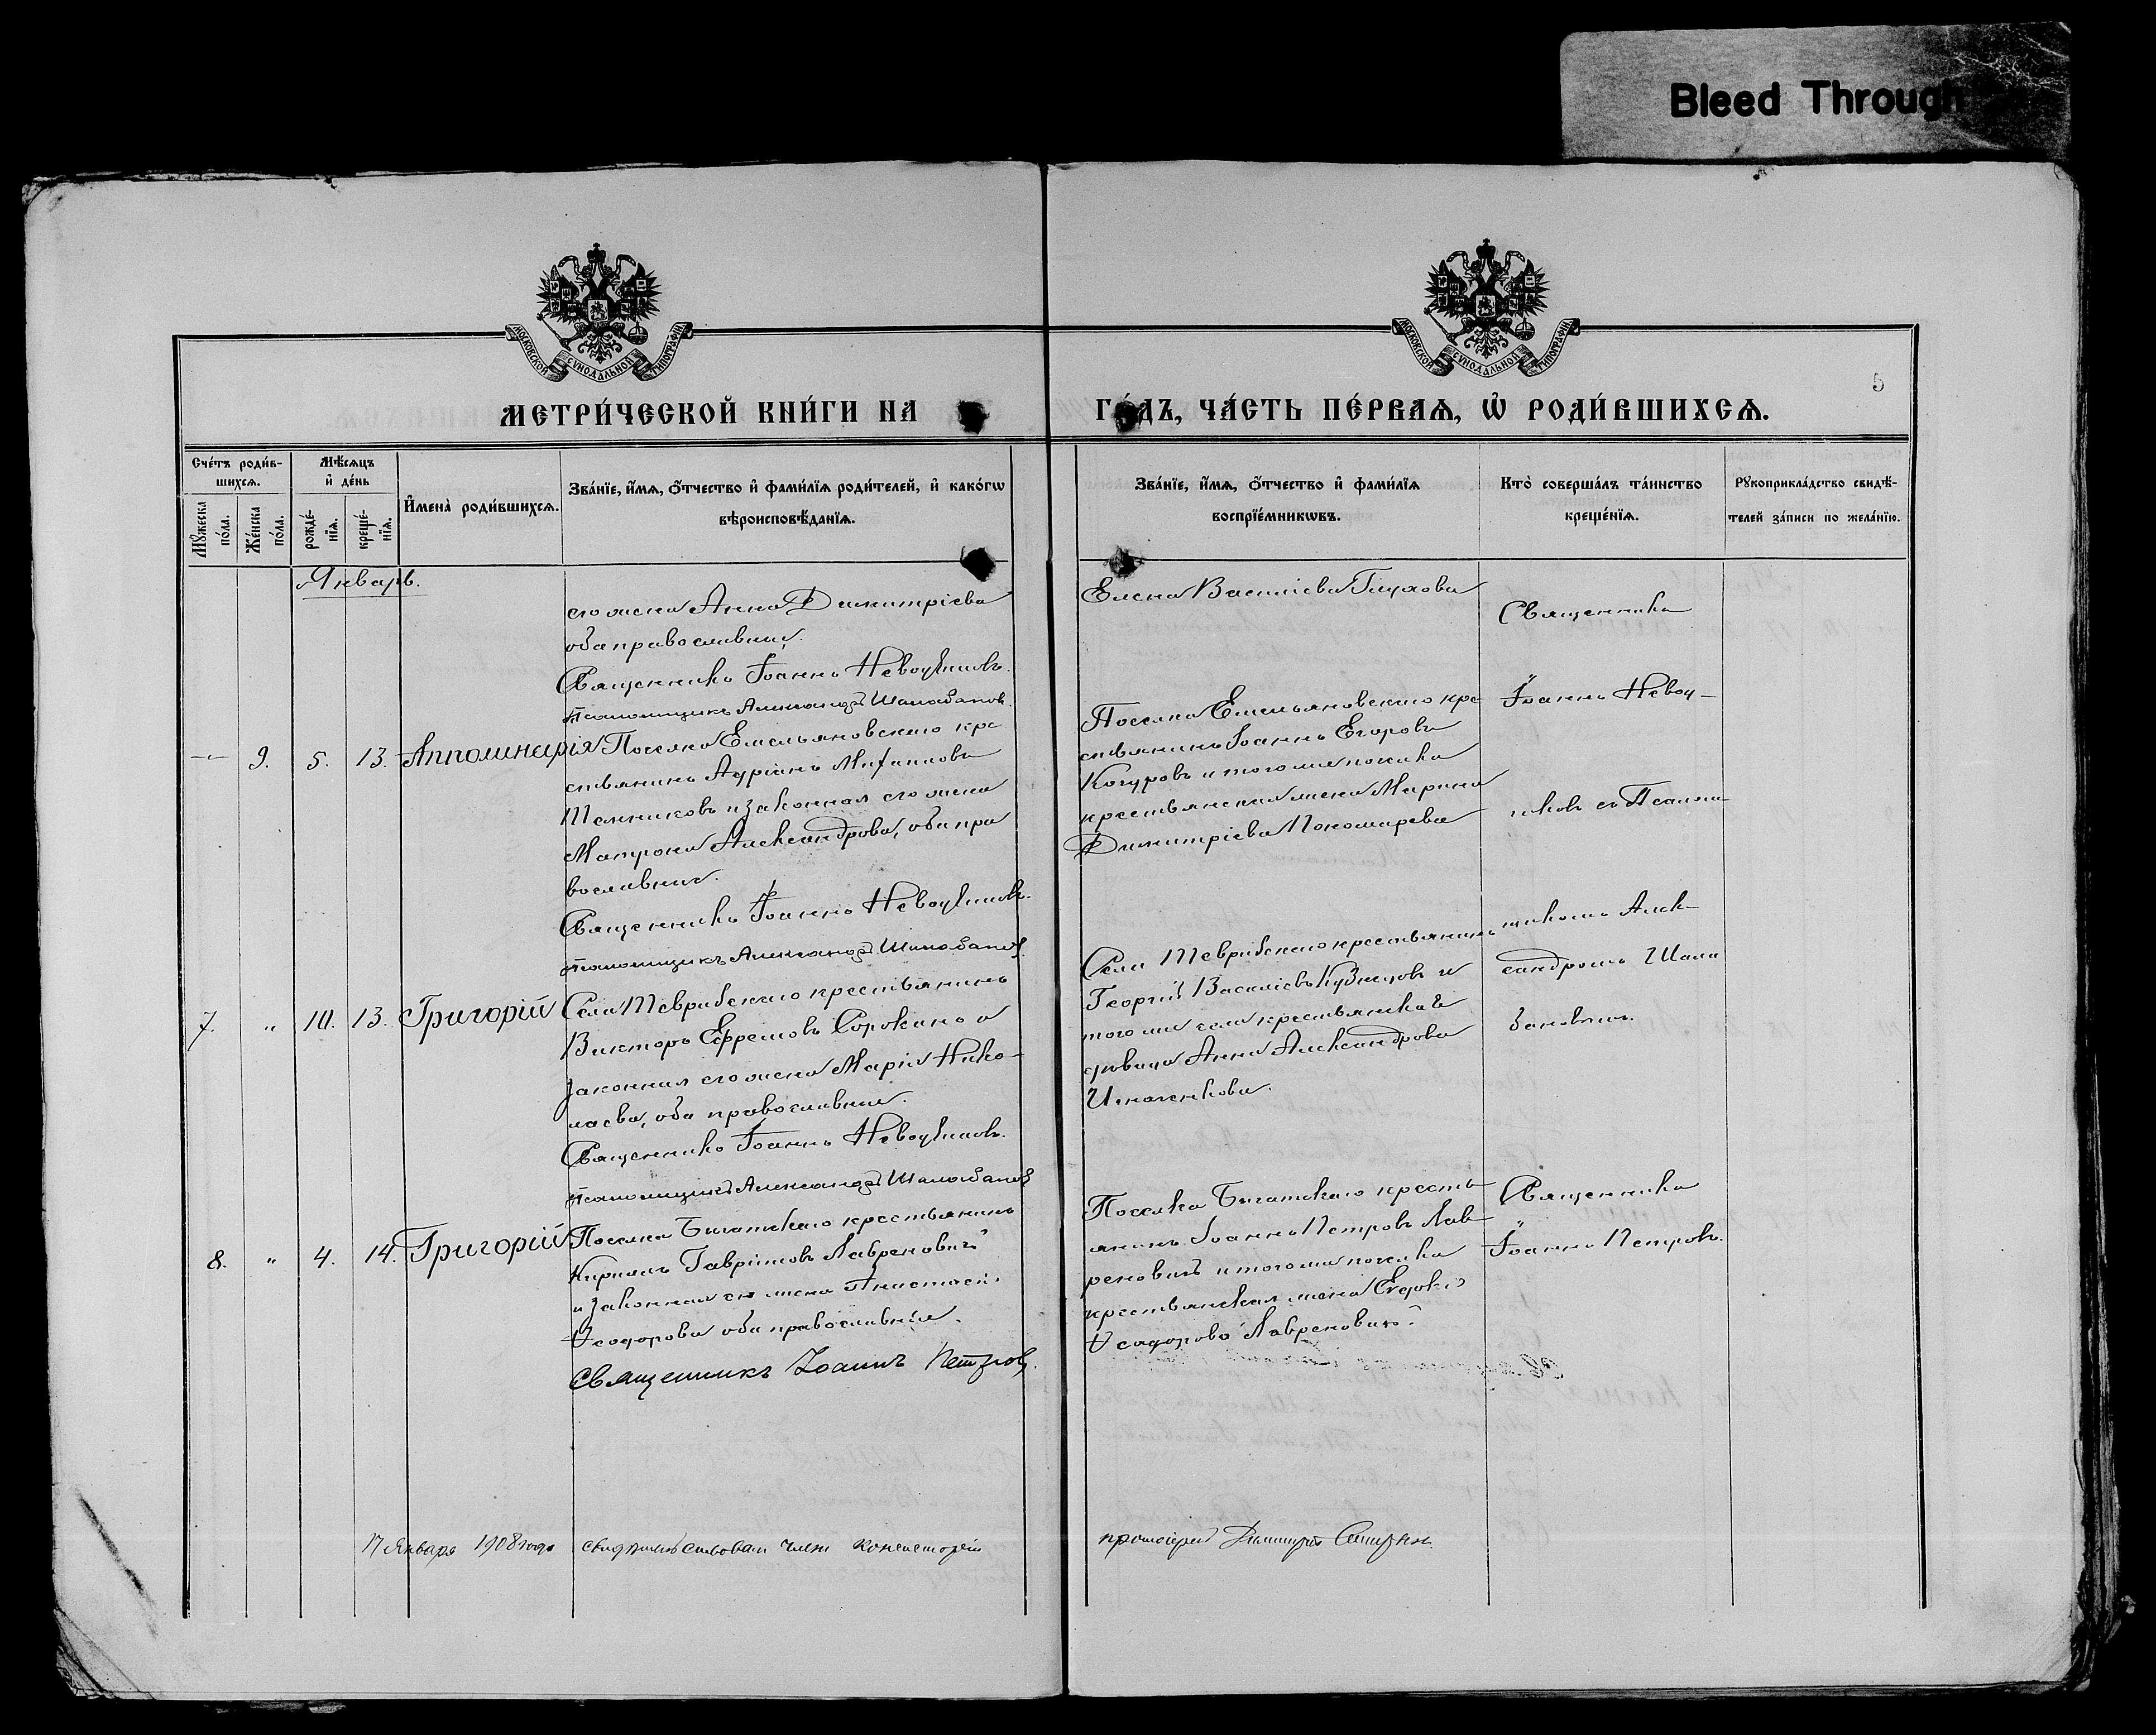 Bleed Through
МОСКОВСКОЙ СѴНОДАЛЬНОЙ ТИПОГРАФІИ
МОСКОВСКОЙ СѴНОДАЛЬНОЙ ТИПОГРАФІИ
5
МЕТРИ́ЧЕСКОЙ КНИ́ГИ НА
ГО́ДЪ, ЧА́СТЬ ПЕ́РВАѦ, Ѡ҆ РОДИ́ВШИХСѦ.
Сче́тъ роди́в-
шихсѧ.
Мꙋ́жеска по́ла.
Же́нска по́ла.
Мѣ́сѧцъ
и҆ де́нь
рожде́-
нїѧ.
креще́-
нїѧ.
И҆мена̀ роди́вшихсѧ.
Зва́нїе, и҆́мѧ, ѻ҆́тчество и҆ фами́лїѧ роди́телей, и҆ како́гѡ
вѣроисповѣ́данїѧ.
Зва́нїе, и҆́мѧ, ѻ҆́тчество и҆ фами́лїѧ
воспрїе́мникѡвъ.
Кто̀ соверша́лъ та́инство
креще́нїѧ.
Рꙋкоприкла́дство свидѣ́-
телей за́писи по жела́нїю.
Январь.
его жена Анна Димитріева
оба православные.
Священникъ Іоаннъ
Псаломщикъ Александръ
Елена Васильева Глухова
Священникъ
"
9.
5.
13.
Апполинарія
Поселка Емельяновскаго кре
стьянинъ Адріанъ
и законная его жена
Матрона Александрова, оба пра
вославные.
Священникъ Іоаннъ
Псаломщикъ Александръ
Поселка Емельяновскаго кре
стьянинъ Іоаннъ Егоровъ
Кочуровъ и того же поселка
крестьянская жена Марина
Димитріева Пономарева
Іоаннъ Невод-
чиковъ съ Псалом-
щикомъ Алек-
сандромъ Шала
7.
"
10.
13.
Григорій
Села Тевризскаго крестьянинъ
Викторъ Ефремовъ Сорокинъ и
законная его жена Марія Нико-
лаева, оба православные.
Священникъ Іоаннъ
Псаломщикъ Александръ
Села Тевризскаго крестьянинъ
Георгій Васильевъ Кузнецовъ и
того же села крестьянская
дѣвица Анна Александрова
Игнатенкова.
8.
"
4.
14.
Григорій
Поселка крестьянинъ
Гавріиловъ Лавреновичъ
и законная его жена Анастасія
Ѳеодорова оба православные.
Священникъ Іоаннъ Петровъ.
Поселка кресть
янинъ Іоаннъ Петровъ Лав
реновичъ и того же поселка
крестьянская жена Евдокія
Ѳеодорова Лавреновичъ.
Священникъ
Іоаннъ Петровъ.
17 Января 1908 года
свидѣтельствовалъ членъ Консисторіи
протоіерей Димитрій